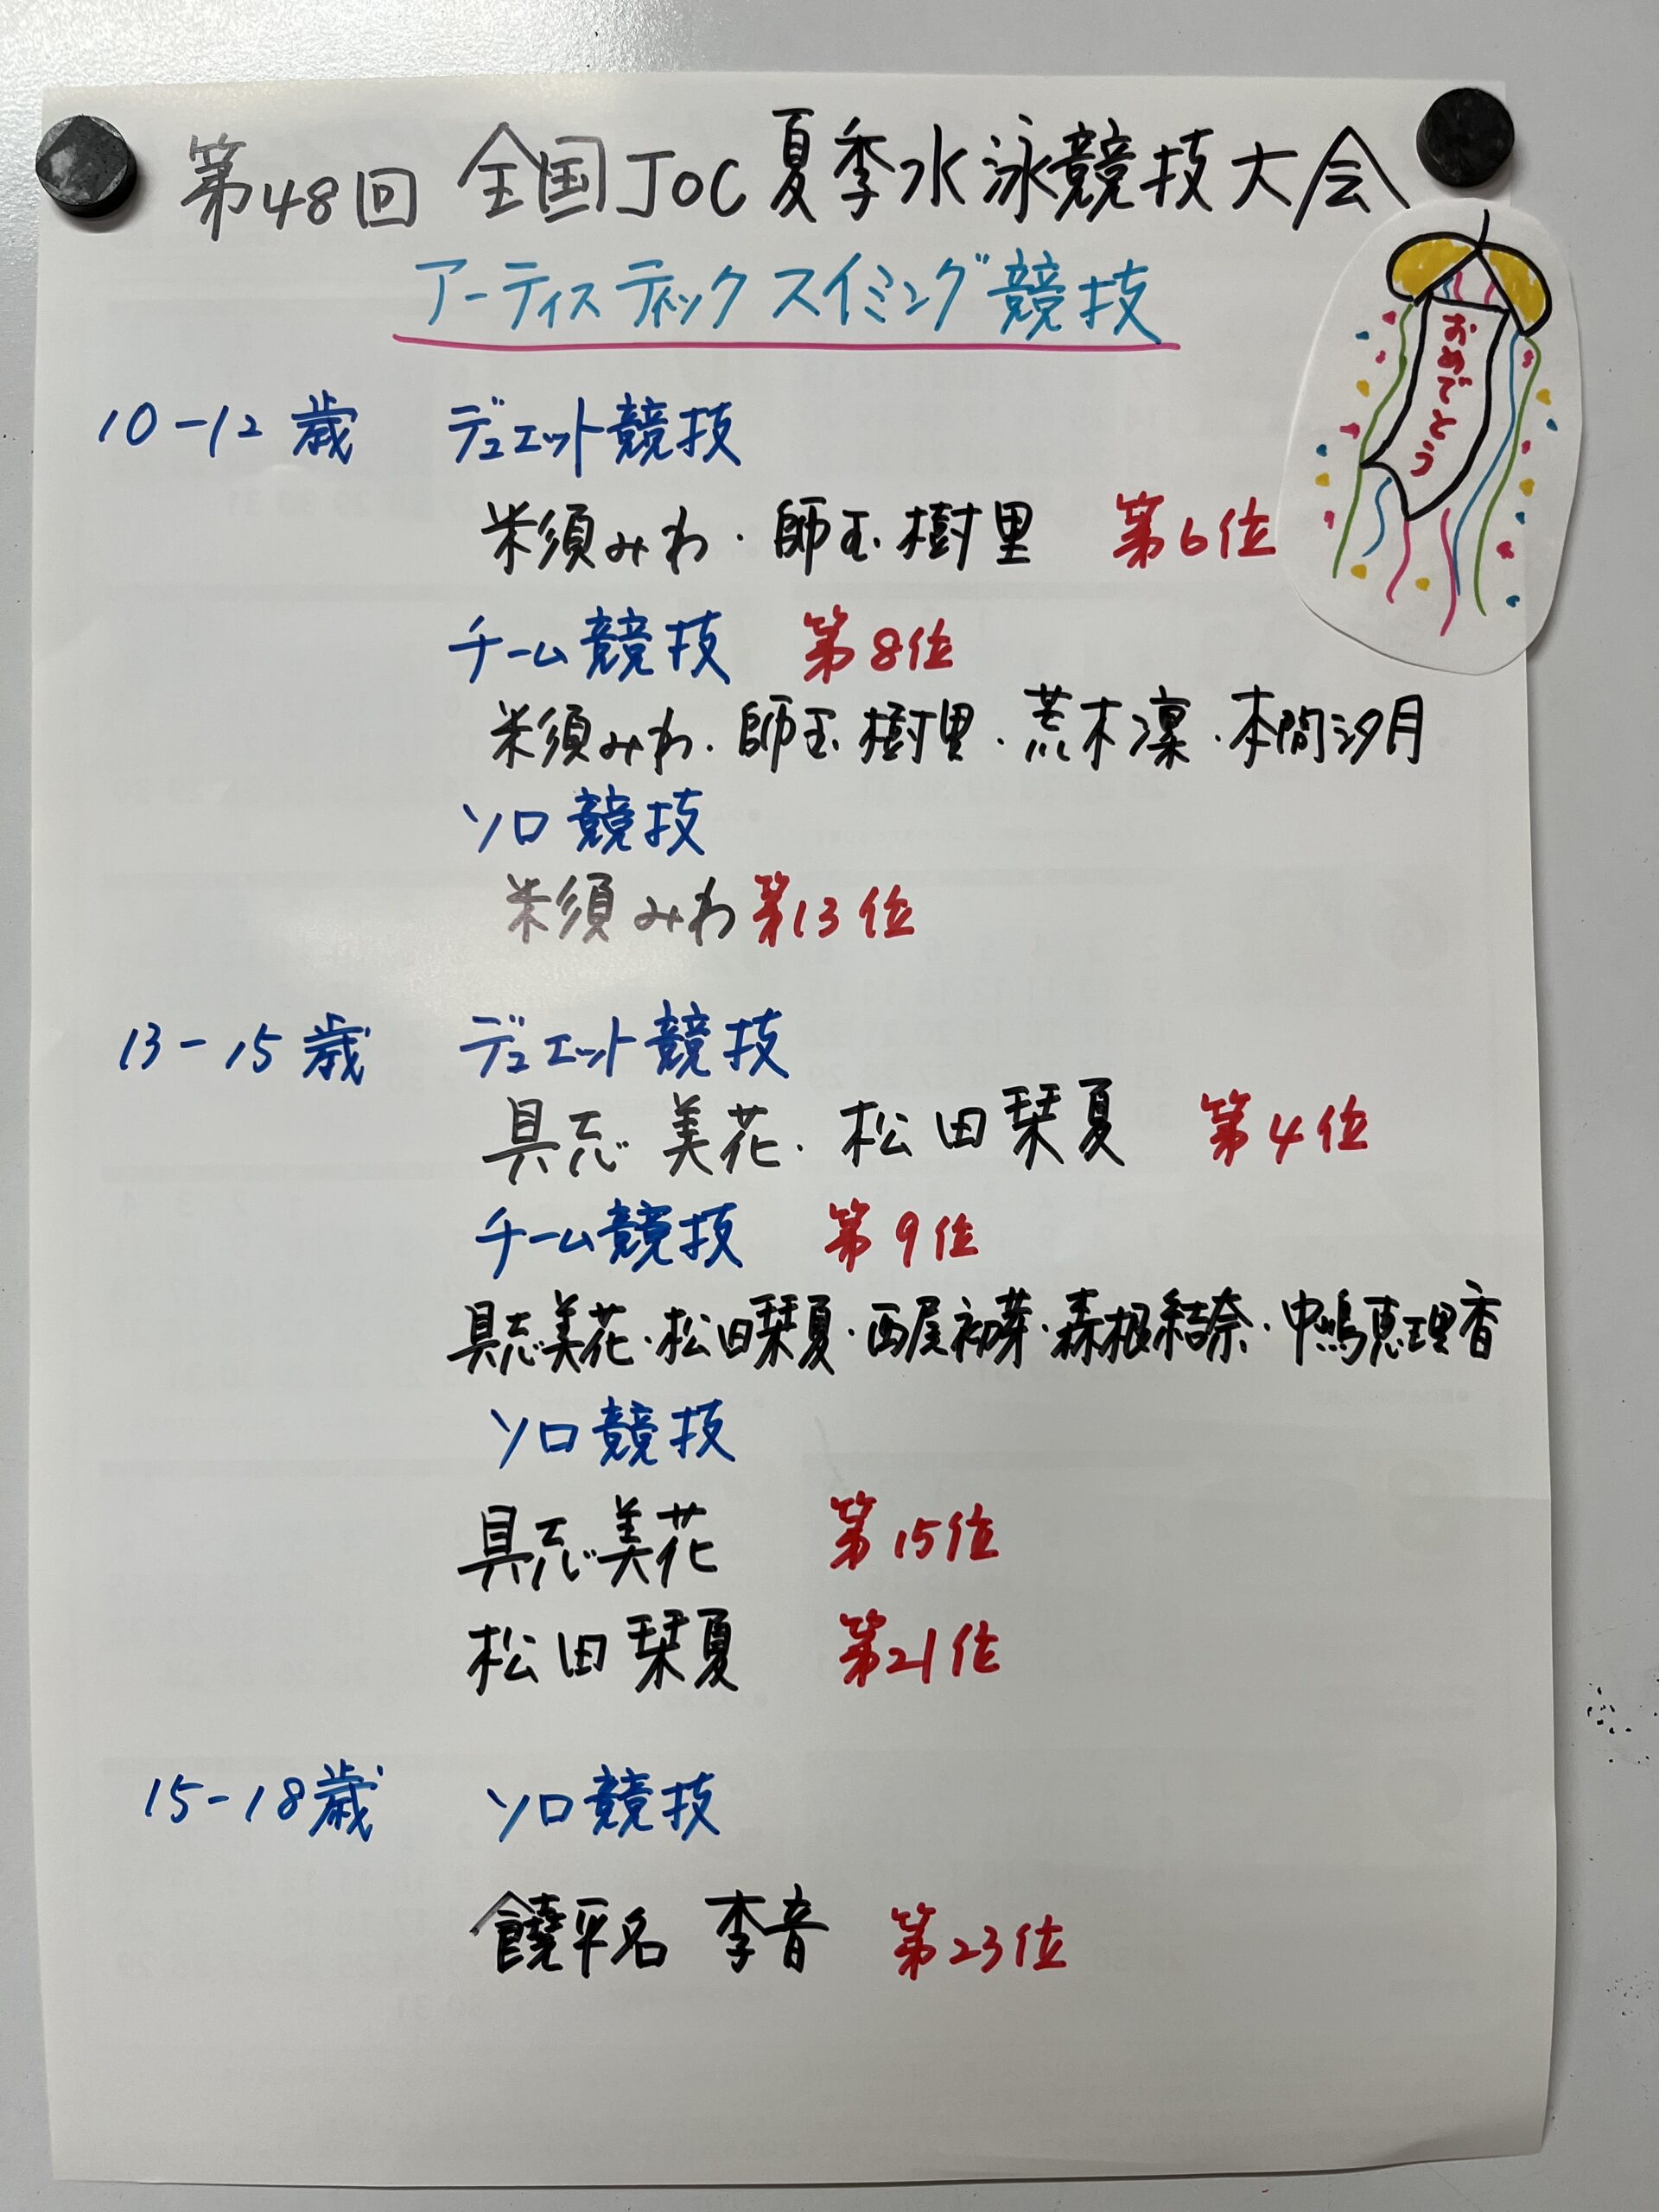 第48回 全国JOC夏季水泳競技大会
アーティスティックスイミング競技
おめでとう
10-12歳 デュエット競技
米須みわ・師玉樹里 第6位
チーム競技 第8位
米須みわ・師玉樹里・荒木凜・本間汐月
ソロ競技
米須みわ 第13位
13-15歳 デュエット競技
具志美花・松田栞夏 第4位
チーム競技 第9位
具志美花・松田栞夏・西尾初芽・森根結奈・中嶋恵理香
ソロ競技
具志美花 第15位
松田栞夏 第21位
15-18歳 ソロ競技
饒平名 李音 第23位